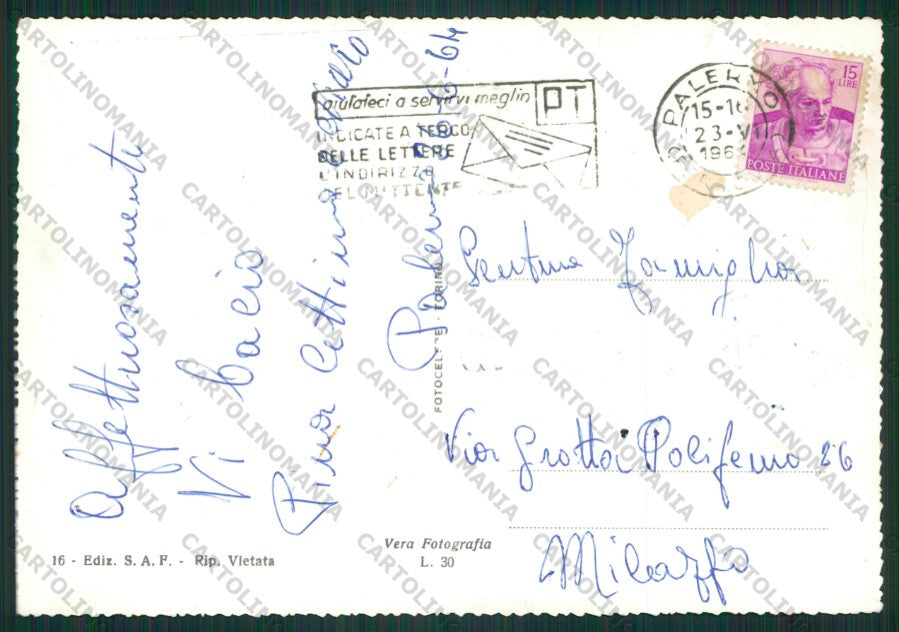 Affettuosamente
Vi bacio
Pina Cettina
Palermo 23-6-64
aiutateci a servirvi meglio
PT
INDICATE A TERGO
DELLE LETTERE
L'INDIRIZZO
DEL MITTENTE
PALERMO
15-16
23-VI
196
15
LIRE
POSTE ITALIANE
Gentma Famiglia
...
Via Grotta Polifemo 26
Milazzo
FOTOCELERE - TORINO
16 - Ediz. S. A. F. - Rip. Vietata
Vera Fotografia
L. 30
CARTOLINOMANIA